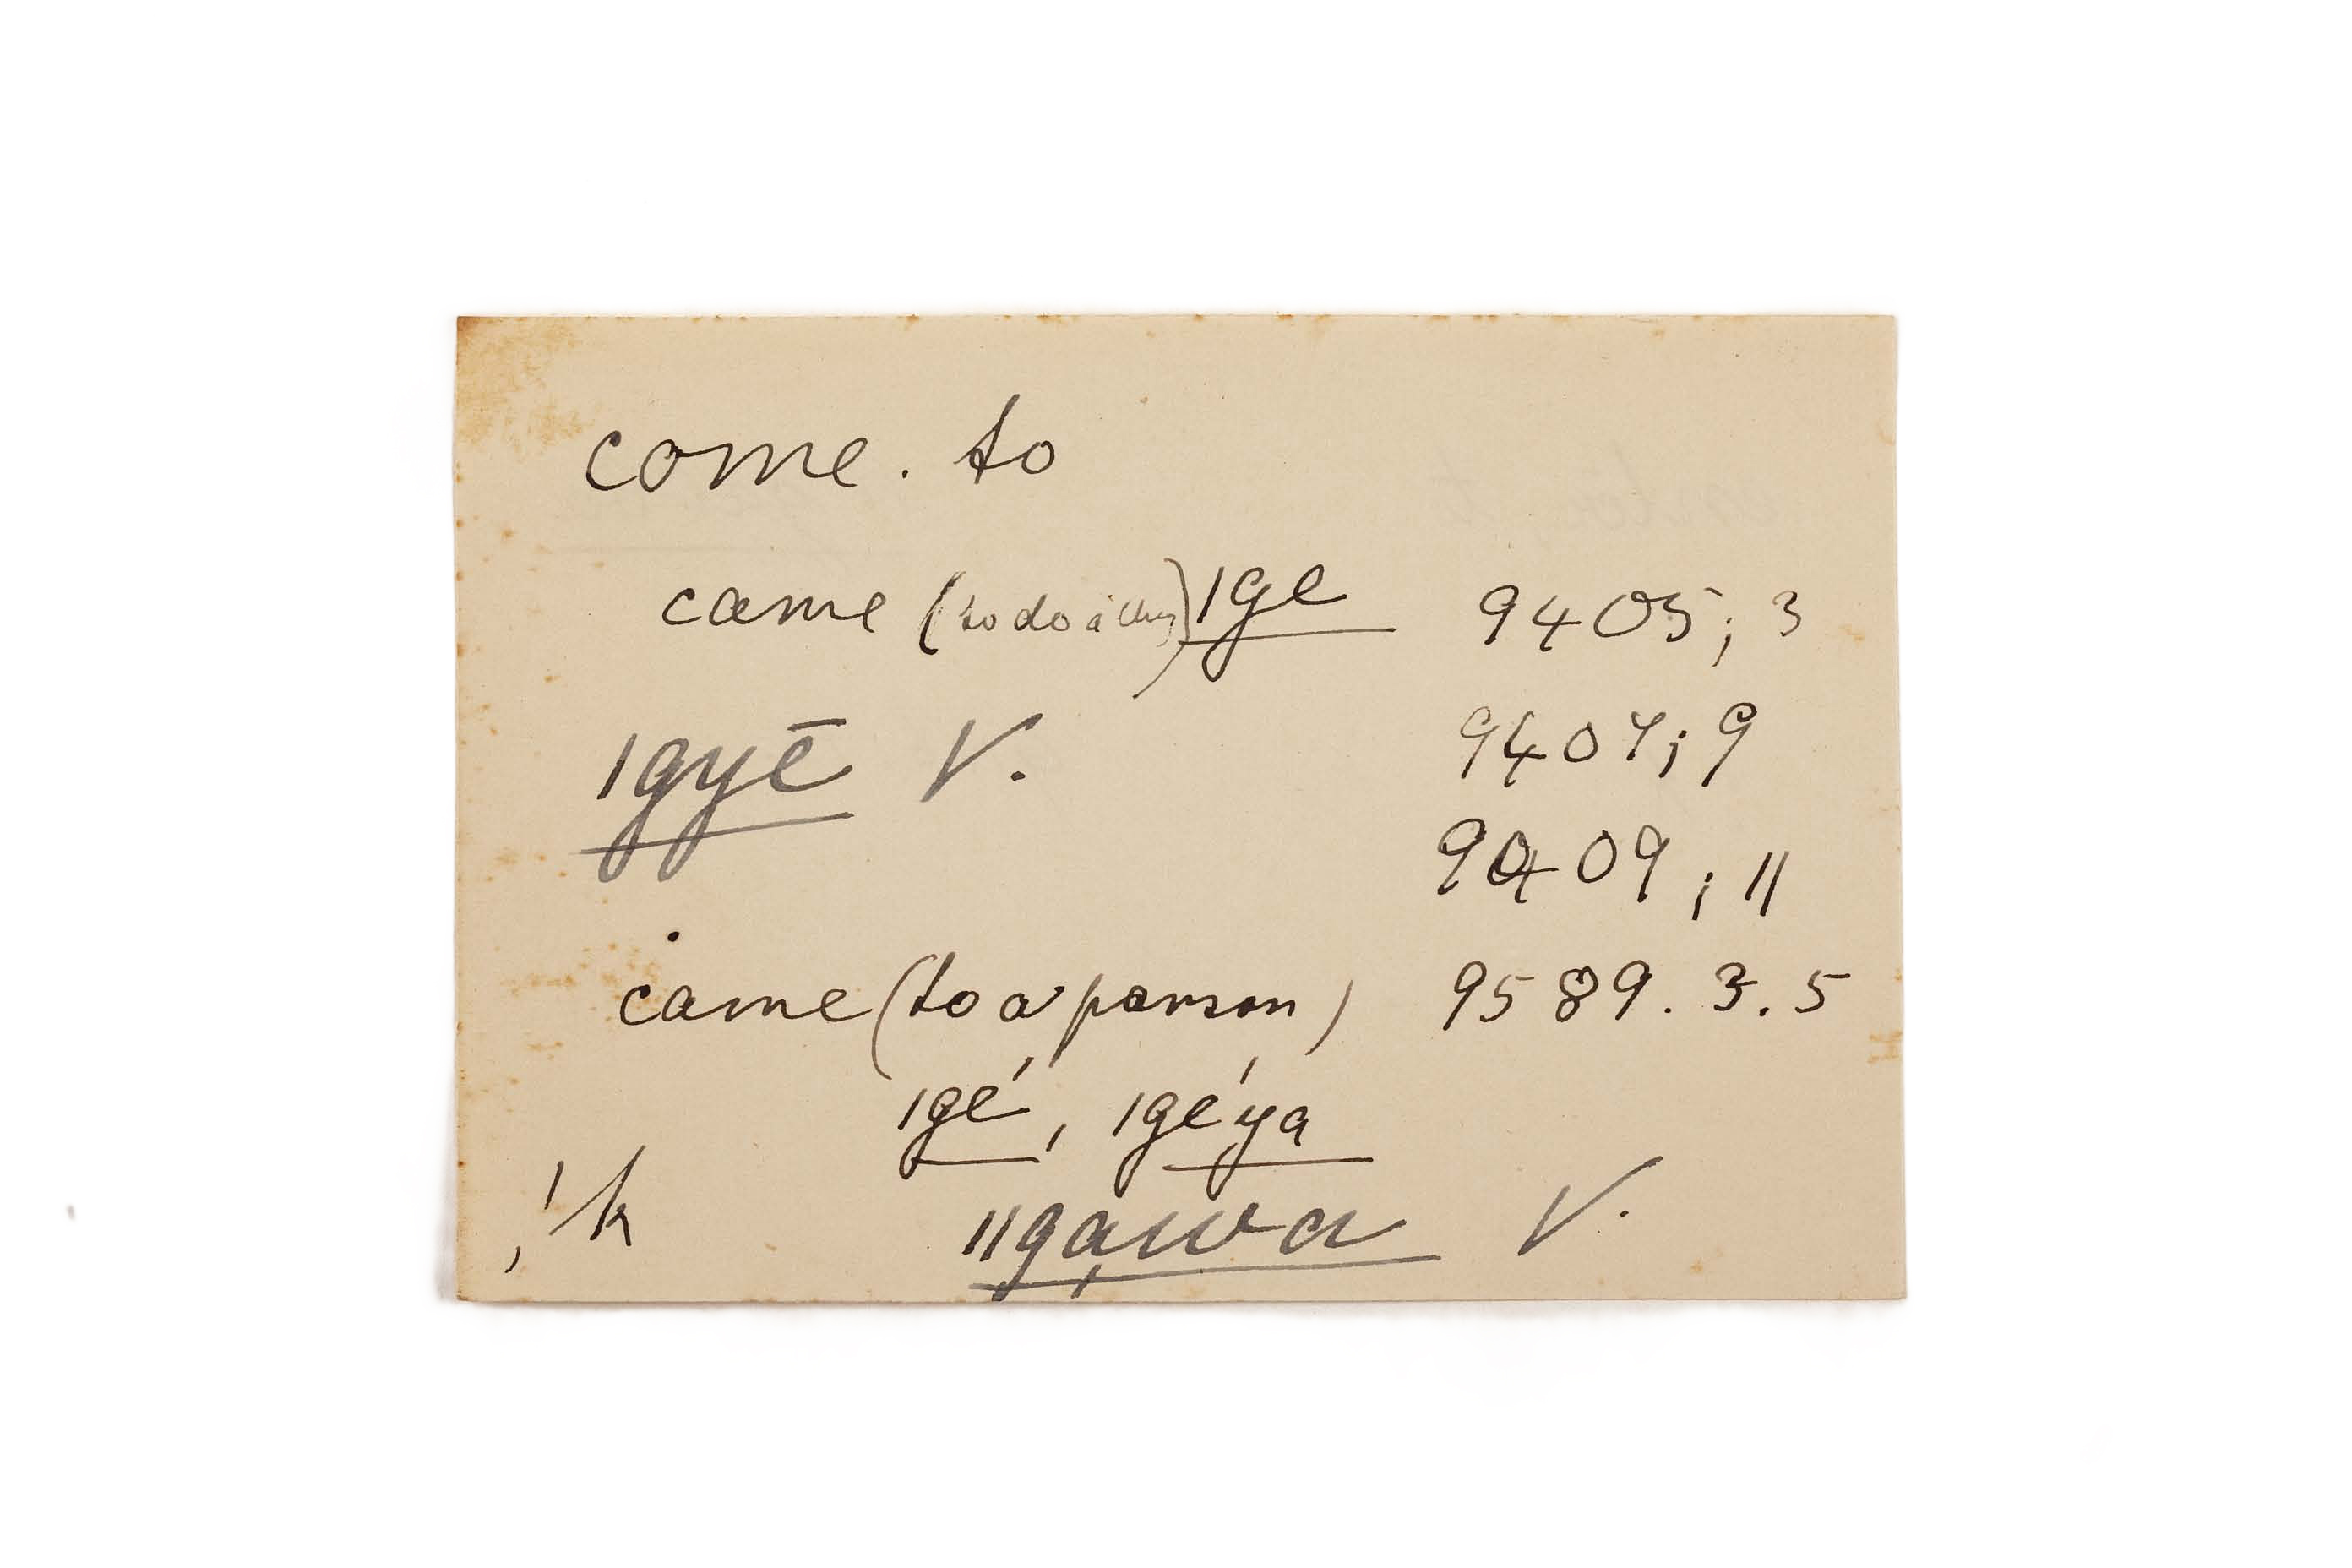 come. to
came (to do a thing) |ge 9405; 3
|gyē V. 9407; 9
9409; 11
came (to a person) 9589. 3. 5
|gé, |géya
!k ||gąwa V.